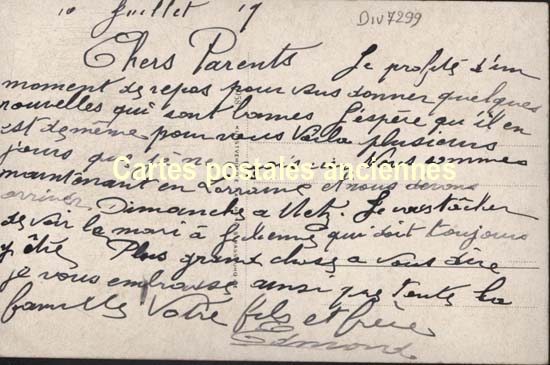 10 Juillet 19
Div7299
Chers Parents Je profite d'un
moment de repos pour vous donner quelques
nouvelles qui sont bonnes J'espère qu'il en
est de même pour vous Voila plusieurs
jours que Nous sommes
Cartes postales anciennes
maintenant en Lorraine et nous devons
arriver Dimanche a Metz. Je vais tâcher
de voir le mari à qui doit toujours
y être Plus grand chose a vous dire
je vous embrasse ainsi que toute la
famille Votre fils et frère
Edmond